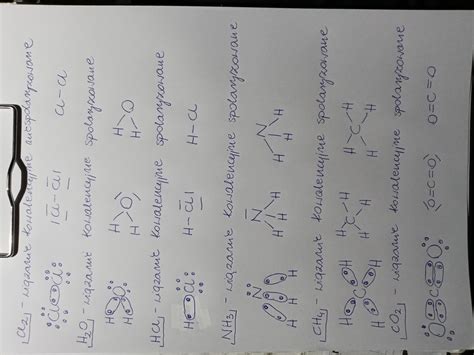 Cl₂ - wiązanie kowalencyjne niespolaryzowane
Cl Cl |Cl-Cl| Cl-Cl
H₂O - wiązanie kowalencyjne spolaryzowane
H H O H H O H H O
HCl - wiązanie kowalencyjne spolaryzowane
H Cl H-Cl| H-Cl
NH₃ - wiązanie kowalencyjne spolaryzowane
N H H H N H H H N H H H
CH₄ - wiązanie kowalencyjne spolaryzowane
H H C H H H H C H H H H C H H
CO₂ - wiązanie kowalencyjne spolaryzowane
O C O O=C=O O=C=O